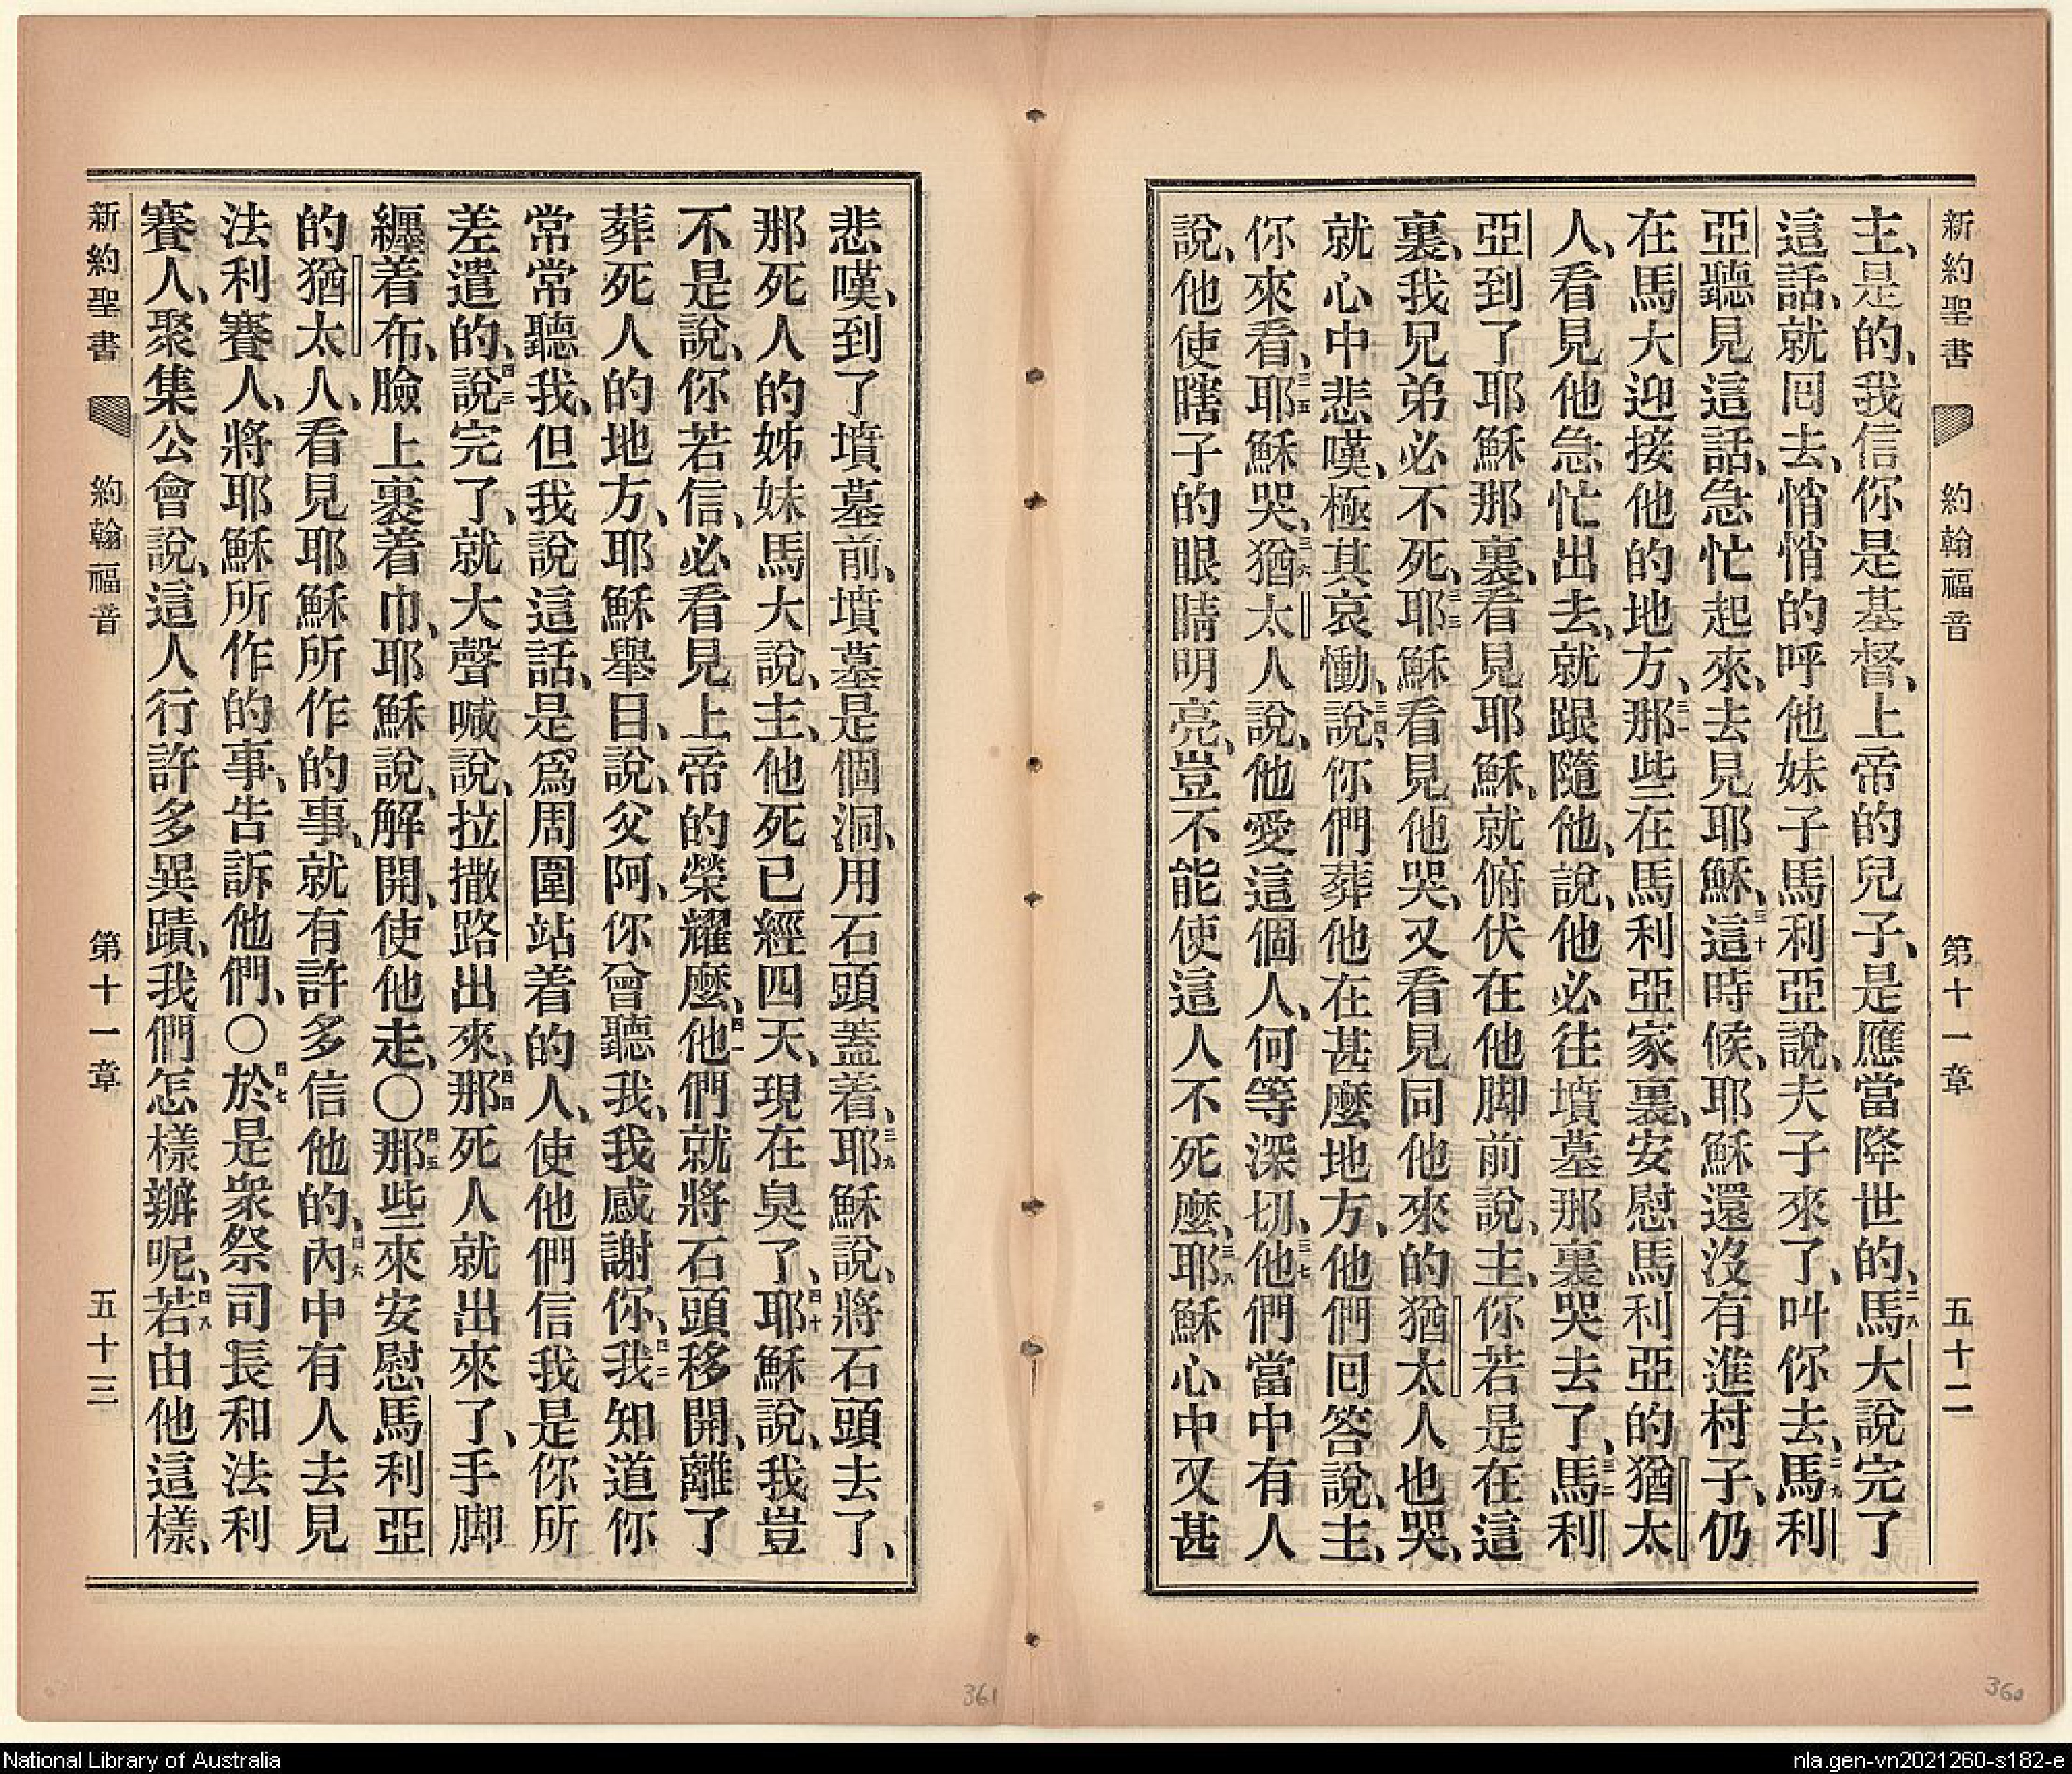 新約聖書 約翰福音 第十一章 五十二
主、是的、我信你是基督、上帝的兒子、是應當降世的、二八馬大說完了
這話、就囘去、悄悄的呼他妹子馬利亞說、夫子來了、叫你去、二九馬利
亞聽見這話、急忙起來、去見耶穌、三十這時候、耶穌還沒有進村子、仍
在馬大迎接他的地方、三一那些在馬利亞家裏、安慰馬利亞的猶太
人、看見他急忙出去、就跟隨他、說、他必往墳墓那裏哭去了、三二馬利
亞到了耶穌那裏、看見耶穌、就俯伏在他脚前說、主、你若是在這
裏、我兄弟必不死、三三耶穌看見他哭、又看見同他來的猶太人也哭、
就心中悲嘆、極其哀慟、三四說、你們葬他在甚麼地方、他們囘答說、主、
你來看、三五耶穌哭、三六猶太人說、他愛這個人、何等深切、三七他們當中有人
說、他使瞎子的眼睛明亮、豈不能使這人不死麼、三八耶穌心中又甚
悲嘆、到了墳墓前、墳墓是個洞、用石頭蓋着、三九耶穌說、將石頭去了、
那死人的姊妹馬大說、主、他死已經四天、現在臭了、四十耶穌說、我豈
不是說、你若信、必看見上帝的榮耀麼、四一他們就將石頭移開、離了
葬死人的地方、耶穌舉目、說、父阿、你曾聽我、我感謝你、四二我知道你
常常聽我、但我說這話、是爲周圍站着的人、使他們信我是你所
差遣的、四三說完了、就大聲喊說、拉撒路出來、四四那死人就出來了、手脚
纒着布、臉上裹着巾、耶穌說、解開、使他走、〇四五那些來安慰馬利亞
的猶太人、看見耶穌所作的事、就有許多信他的、四六內中有人去見
法利賽人、將耶穌所作的事、告訴他們、〇四七於是衆祭司長和法利
賽人、聚集公會說、這人行許多異蹟、我們怎樣辦呢、四八若由他這樣、
新約聖書 約翰福音 第十一章 五十三
361
360
National Library of Australia
nla.gen-vn2021260-s182-e